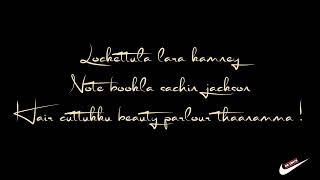 Lockettula lara kamney
Note bookla sachin jackson
Hair cuttukku beauty parlour thaanamma !